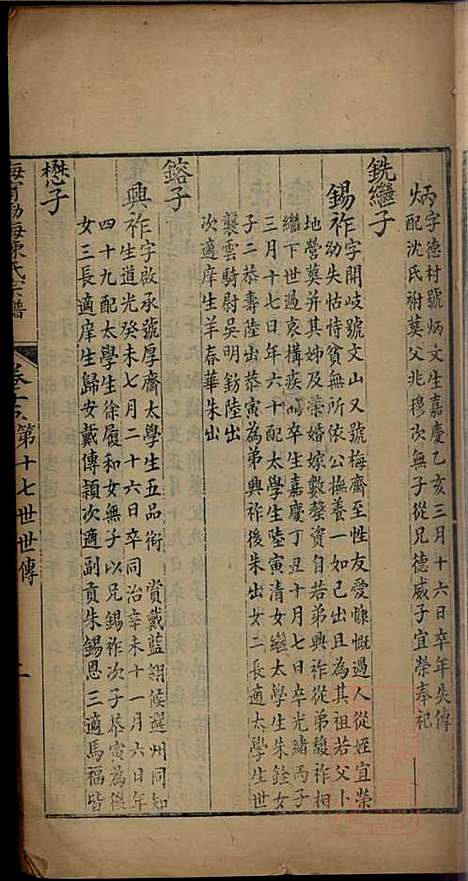 炳字德村號炳文生嘉慶乙亥三月十六日卒年失傳
配沈氏祔葬父兆穆次無子從兄德威子宜榮奉祀
銑繼子
錫祚字開歧號文山又號梅齋至性友愛慷慨過人從姪宜榮
幼失怙恃貧無所依公撫養一如己出且為其祖若父卜
地營葬并其姊及榮婚嫁數罄資自若弟興祚從弟馥祚相
繼下世過哀構疾卒生嘉慶丁丑十月七日卒光緒丙子
三月十七日年六十配太學生陸寅清女繼太學生朱銓女
子二恭壽陸出恭寅為弟興祚後朱出女二長適太學生世
襲雲騎尉吳明鈁陸出
次適庠生羊春華朱出
鎔子
興祚字啟承號厚齋太學生五品銜 賞戴藍翎候選州同知
生道光癸未七月二十六日卒同治辛未十一月六日年
四十九配太學生徐履和女無子以兄錫祚次子恭寅為後
女三長適庠生歸安戴傳穎次適副貢朱錫恩三適馬福皆
懋子
海寧渤海陳氏宗譜
第十七世世傳